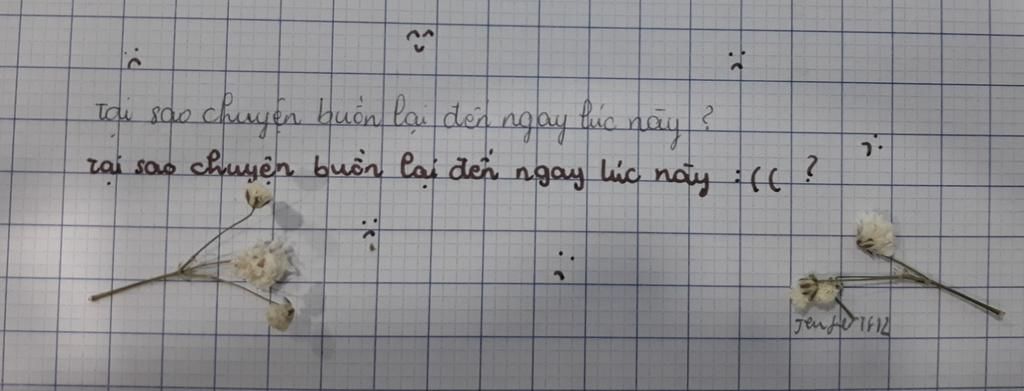 Tại sao chuyện buồn lại đến ngay lúc này ?
Tại sao chuyện buồn lại đến ngay lúc này :(( ?